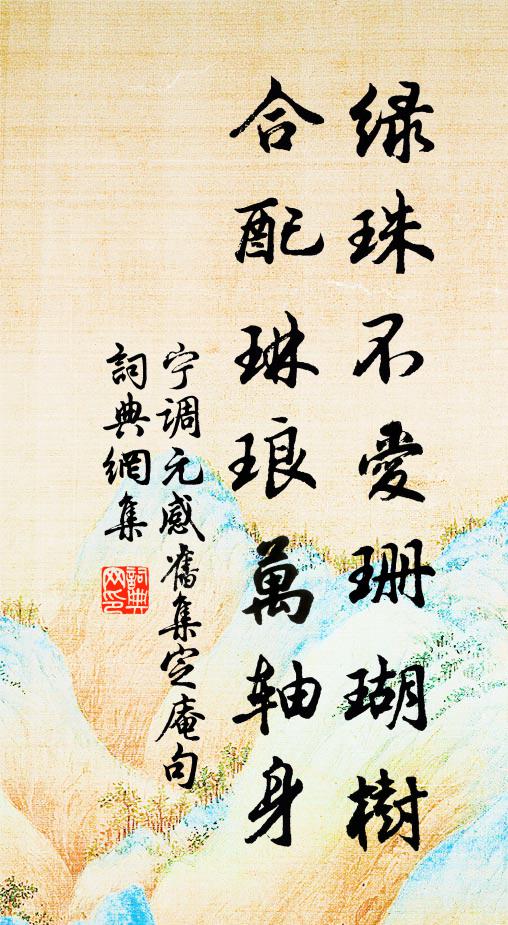 绿珠不愛珊瑚樹
合配琳琅萬轴身
宁调元感舊集定庵句
詞典網集
詞典网印